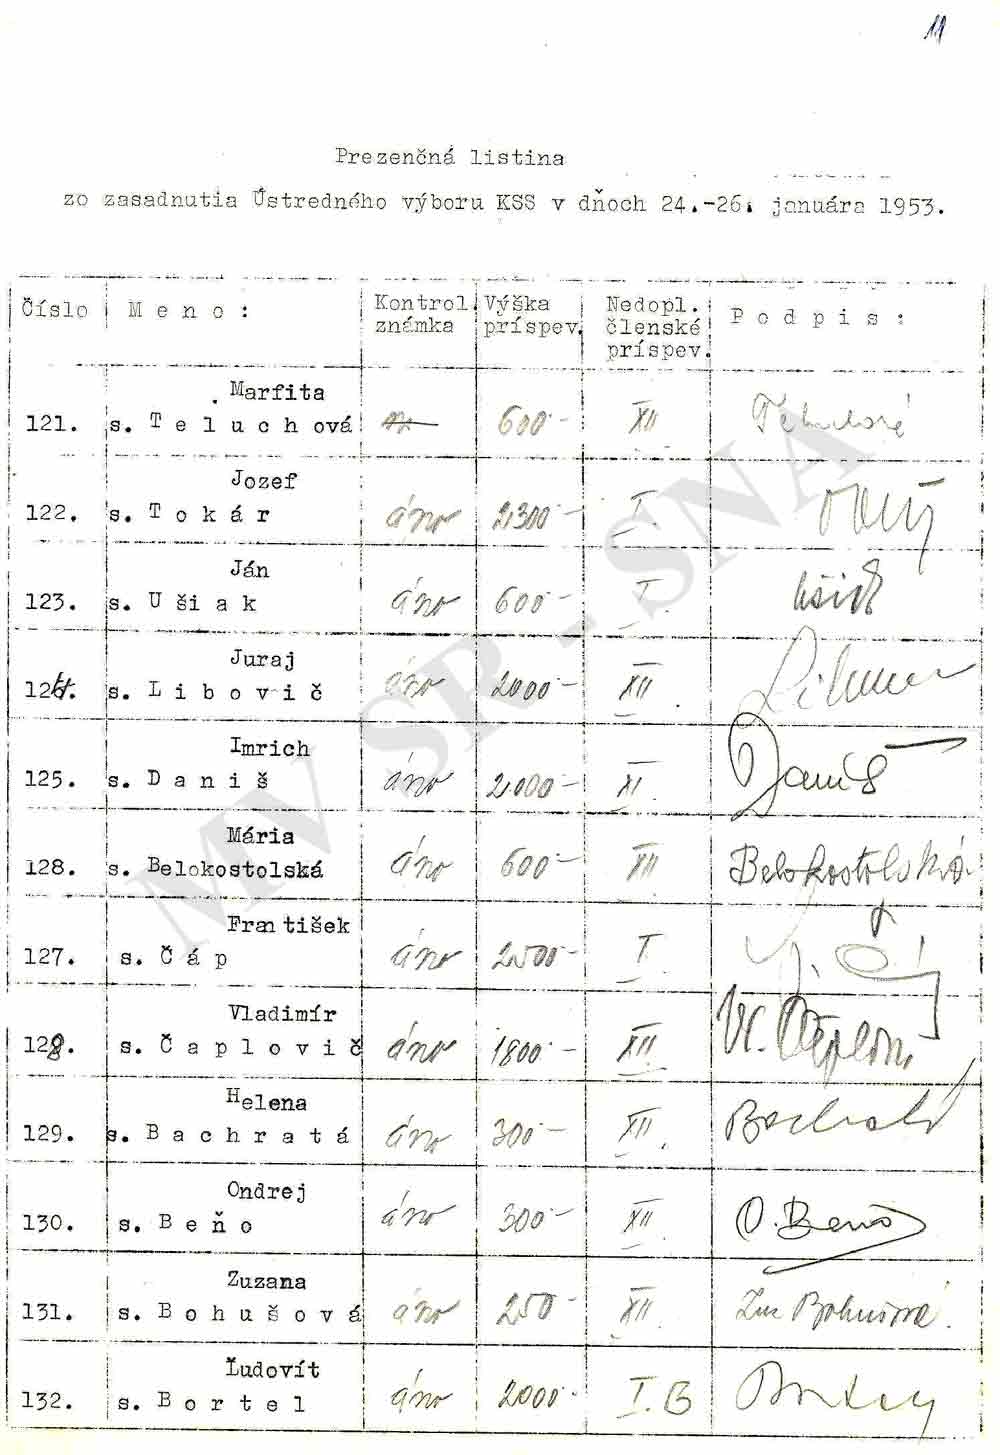 11
Prezenčná listina
zo zasadnutia Ústredného výboru KSS v dňoch 24.-26. januára 1953.
Číslo M e n o : Kontrol. známka Výška príspev. Nedopl. členské príspev. P o d p i s :
Marfita
121. s. T e l u c h ová 600.- XII
Jozef
122. s. T o k á r áno 2,300.- I.
Ján
123. s. U š i a k áno 600.- I. Ušiak
Juraj
124. s. L i b o v i č áno 2000.- XII
Imrich
125. s. D a n i š áno 2.000.- XI. Daniš
Mária
128. s. Belokostolská áno 600.- XII Belokostolská
František
127. s. Č á p áno 2500.- I.
Vladimír
128. s. Č a p l o v i č áno 1800.- XII.
Helena
129. s. B a c h r a t á áno 300.- XII. Bachratá
Ondrej
130. s. B e ň o áno 300.- XII O. Beňo
Zuzana
131. s. B o h u š o v á áno 250.- XII Zuz Bohušová
Ľudovít
132. s. B o r t e l áno 2000.- I.B
MV SR - SNA